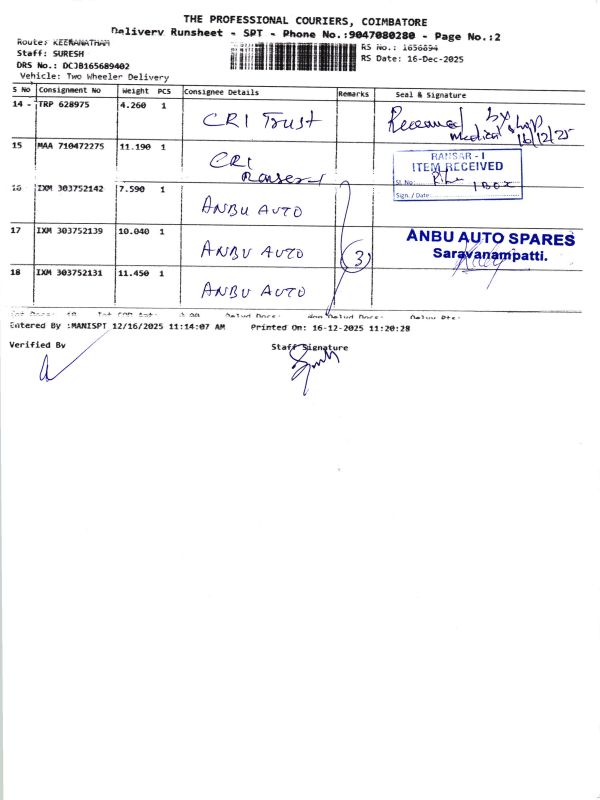 THE PROFESSIONAL COURIERS, COIMBATORE
Delivery Runsheet - SPT - Phone No.:9047080280 - Page No.:2
Route: KEERANATHAM
RS No.: 1656894
Staff: SURESH
RS Date: 16-Dec-2025
DRS No.: DCJB165689402
Vehicle: Two Wheeler Delivery
S No Consignment No Weight PCS Consignee Details Remarks Seal & Signature
14 - TRP 628975 4.260 1 CRI Trust Received
Medical 16/12/25
15 MAA 710472275 11.190 1 CRI
RANSAR - I
ITEM RECEIVED
Sl. No: 1 BOX
Sign. / Date
16 IXM 303752142 7.590 1 ANBU AUTO
17 IXM 303752139 10.040 1 ANBU AUTO (3) ANBU AUTO SPARES
Saravanampatti.
18 IXM 303752131 11.450 1 ANBU AUTO
Entered By :MANISPT 12/16/2025 11:14:07 AM Printed On: 16-12-2025 11:20:28
Verified By Staff Signature